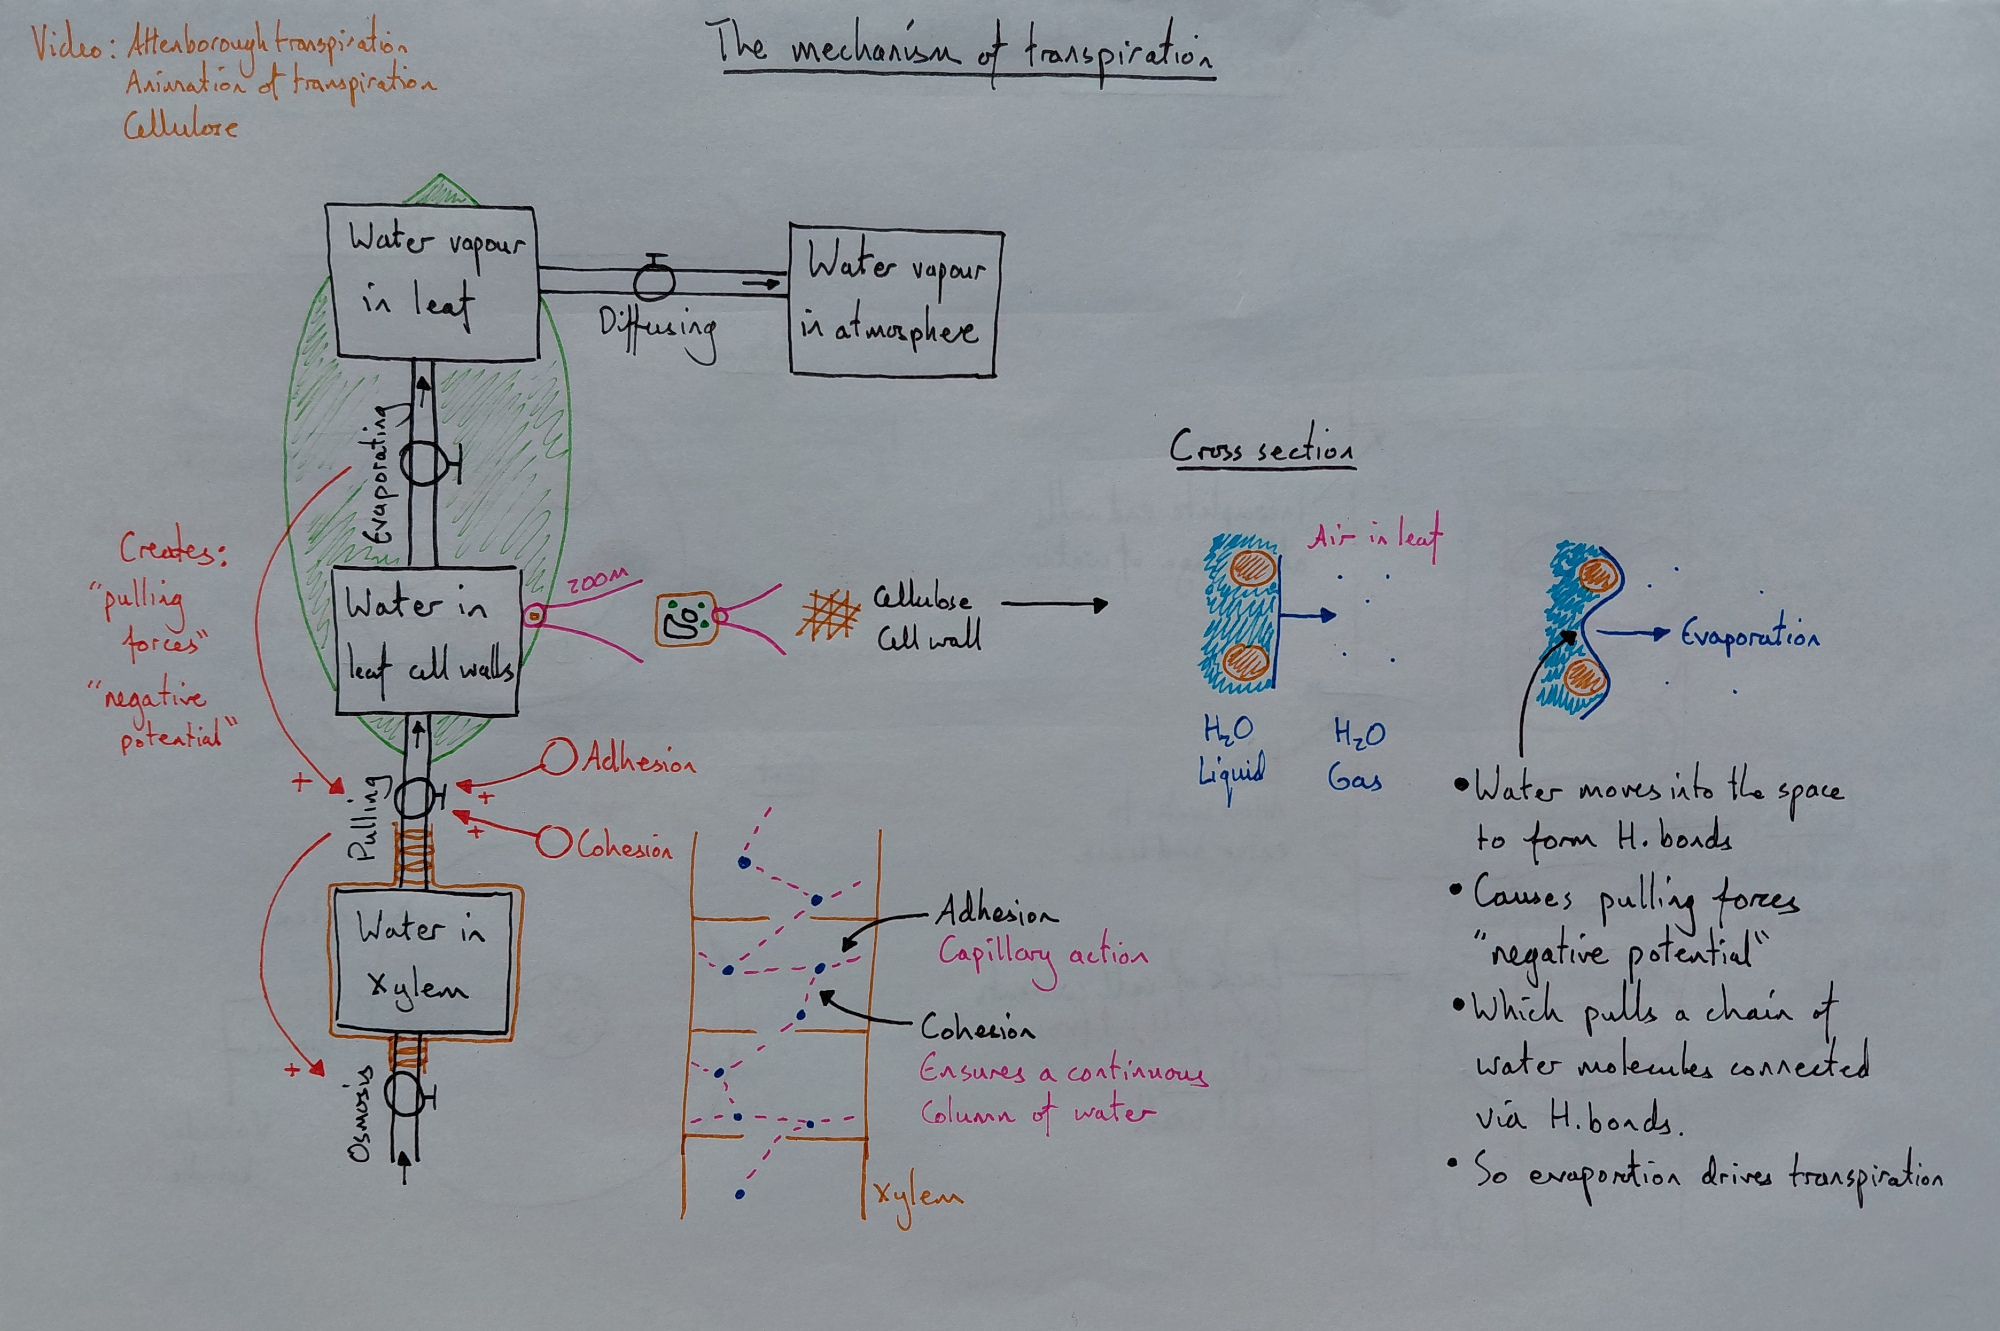 Video: Attenborough transpiration
Animation of transpiration
Cellulose
The mechanism of transpiration
Water vapour
in leaf
Diffusing
Water vapour
in atmosphere
Evaporating
Creates:
"pulling
forces"
"negative
potential"
Water in
leaf cell walls
zoom
Cellulose
Cell wall
Cross section
Air in leaf
H2O
Liquid
H2O
Gas
Evaporation
• Water moves into the space
to form H.bonds
• Causes pulling forces
"negative potential"
• Which pulls a chain of
water molecules connected
via H.bonds.
• So evaportion drives transpiration
+
Pulling
+
Adhesion
+
Cohesion
Water in
Xylem
+
Osmosis
Adhesion
Capillary action
Cohesion
Ensures a continuous
Column of water
Xylem